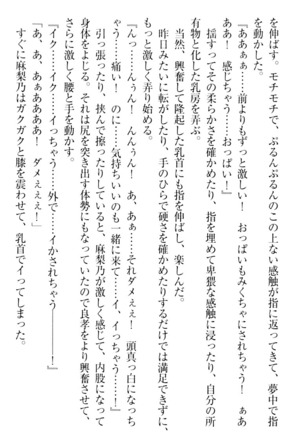 を伸ばす。モチモチで、ぷるんぷるんのこの上ない感触が指に返ってきて、夢中で指
を動かした。
「ああぁぁ……前よりもずっと激しい！　おっぱいもみくちゃにされちゃう！　ぁぁ
ああ！　感じちゃう……おっぱい！」
揺すってその柔らかさを確かめたり、指を埋めて卑猥な感触に浸ったり、自分の所
有物と化した乳房を弄ぶ。
当然、興奮して隆起した乳首にも指を伸ばし、楽しんだ。
昨日みたいに転がしたり、手のひらで硬さを確かめたりするだけでは満足できずに、
もっと激しく弄り始める。
「んっ……んぅん！　んんぅん！　あ、あぁ……それダメぇぇ！　頭真っ白になっち
ゃう……痛い！　のに……気持ちいいのも一緒に来て……イ、イっちゃう……！」
引っ張ったり、挟んで擦ったりしていると、麻梨乃が激しく感じて、内股になって
身体をよじる。それは尻を突き出す体勢にもなっていたので良孝をより興奮させて、
さらに激しく腰と手を動かす。
「イク……イク……イっちゃう……外で……イかされちゃう————！」
「あ、あ、あぁぁああ！　ダメぇぇえ！」
すぐに麻梨乃はガクガクと膝を震わせて、乳首でイってしまった。